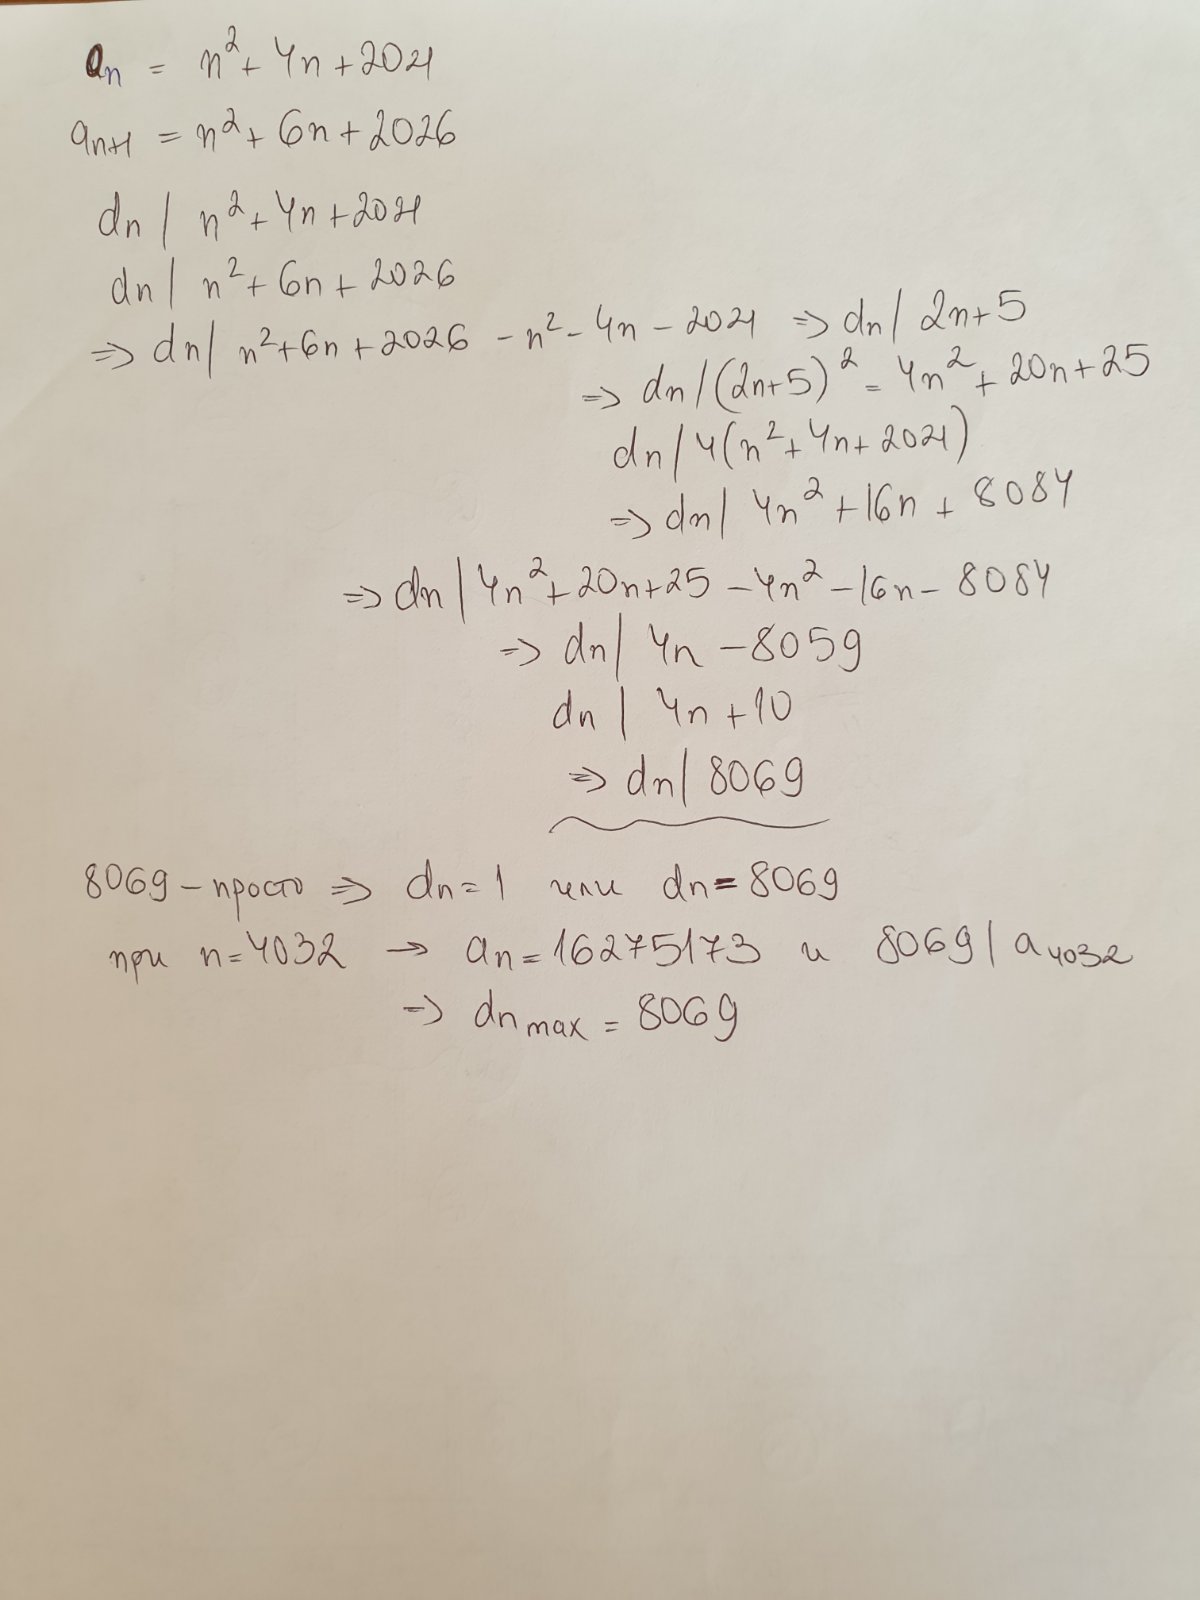 aₙ = n² + 4n + 2021
aₙ₊₁ = n² + 6n + 2026
dn | n² + 4n + 2021
dn | n² + 6n + 2026
=> dn | n² + 6n + 2026 - n² - 4n - 2021 => dn | 2n + 5
=> dn | (2n+5)² = 4n² + 20n + 25
dn | 4(n² + 4n + 2021)
=> dn | 4n² + 16n + 8084
=> dn | 4n² + 20n + 25 - 4n² - 16n - 8084
=> dn | 4n - 8059
dn | 4n + 10
=> dn | 8069
8069 - просто => dn = 1 или dn = 8069
при n = 4032 → an = 16275173 и 8069 | a₄₀₃₂
=> dn max = 8069